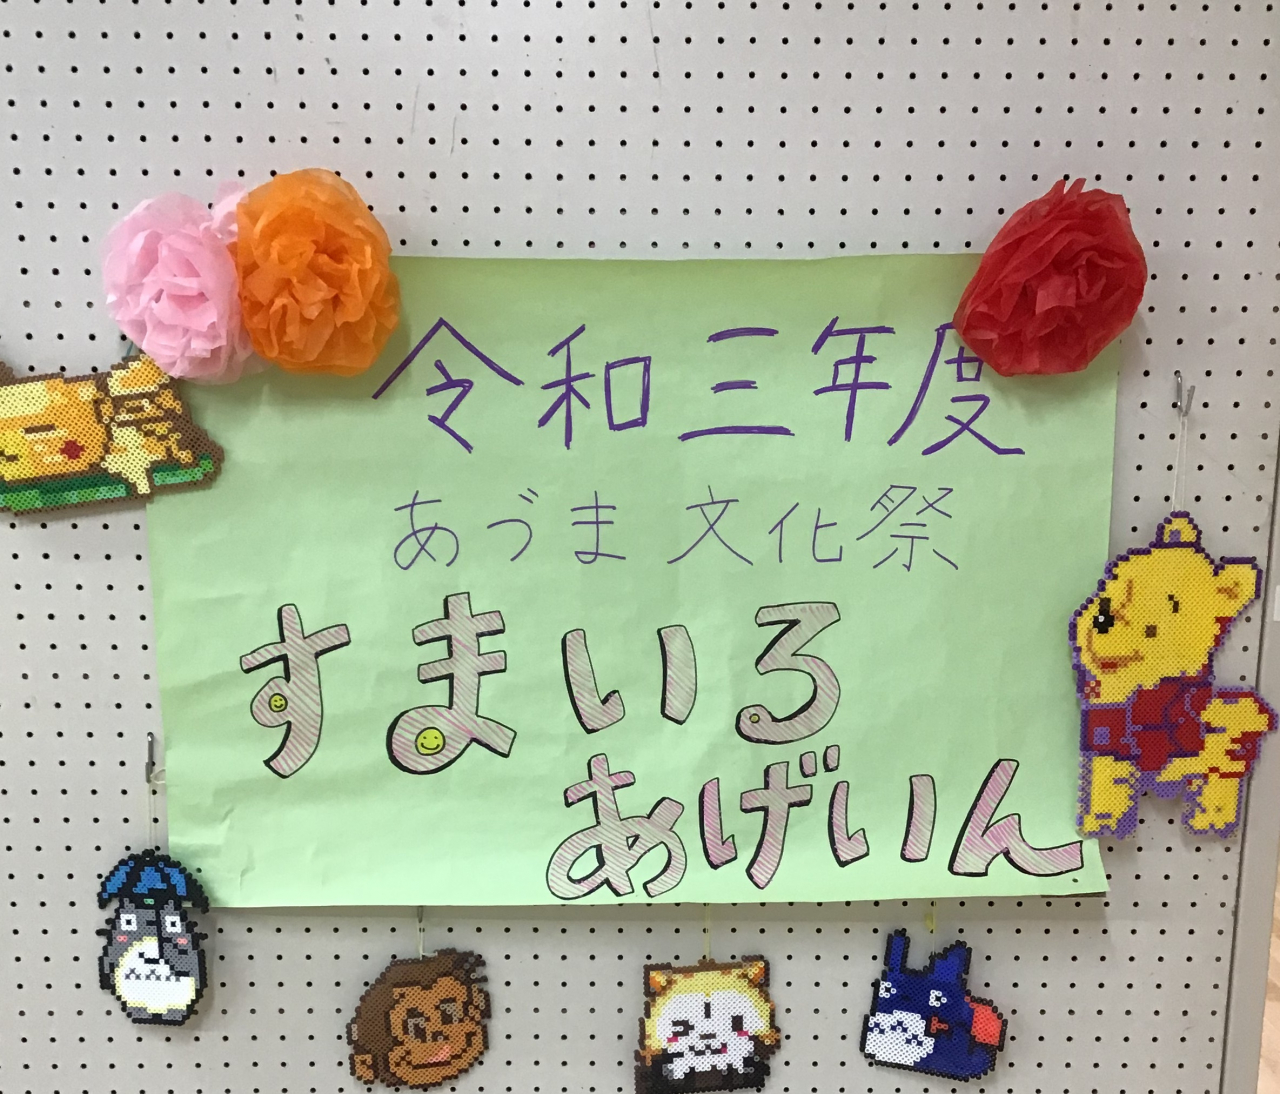 令和三年度
あづま文化祭
すまいる
あげいん